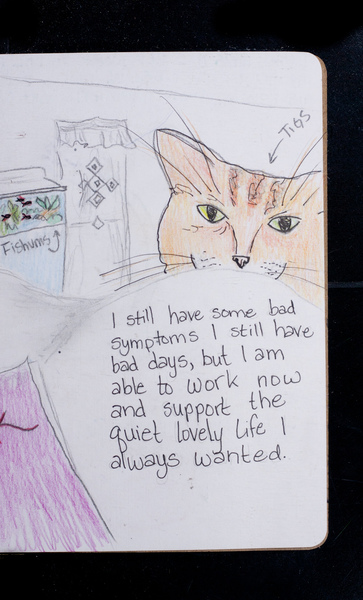 TIGS
Fishums
I still have some bad
symptoms I still have
bad days, but I am
able to work now
and support the
quiet lovely life I
always wanted.